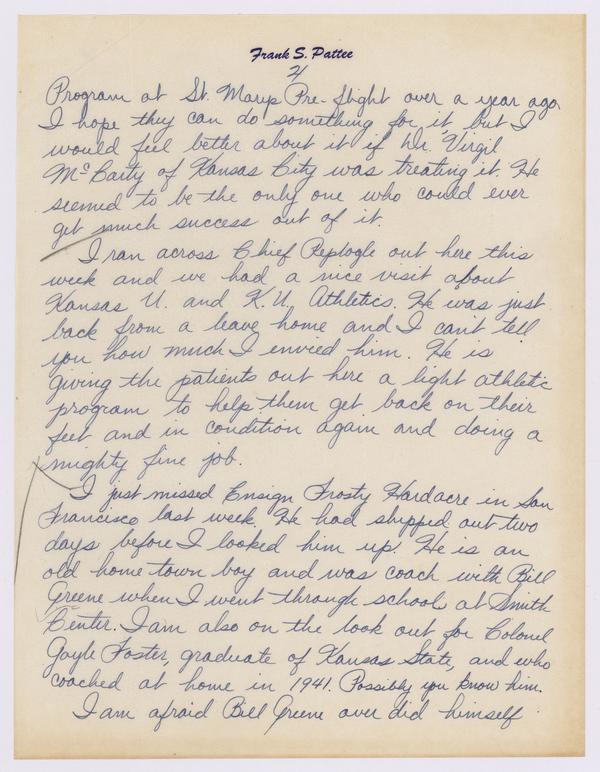 Frank S. Pattee
2/
Program at St. Marys Pre-flight over a year ago.
I hope they can do something for it, but I
would feel better about it if Dr. Virgil
McCarty of Kansas City was treating it. He
seemed to be the only one who could ever
get much success out of it.
I ran across Chief Replogle out here this
week and we had a nice visit about
Kansas U. and K.U. Athletics. He was just
back from a leave home and I cant tell
you how much I envied him. He is
giving the patients out here a light athletic
program to help them get back on their
feet and in condition again and doing a
mighty fine job.
I just missed Ensign Frosty Hardacre in San
Francisco last week. He had shipped out two
days before I looked him up. He is an
old home town boy and was coach with Bill
Greene when I went through school at Smith
Center. I am also on the look out for Colonel
Gayle Foster, graduate of Kansas State, and who
coached at home in 1941. Possibly you know him.
I am afraid Bill Greene over did himself